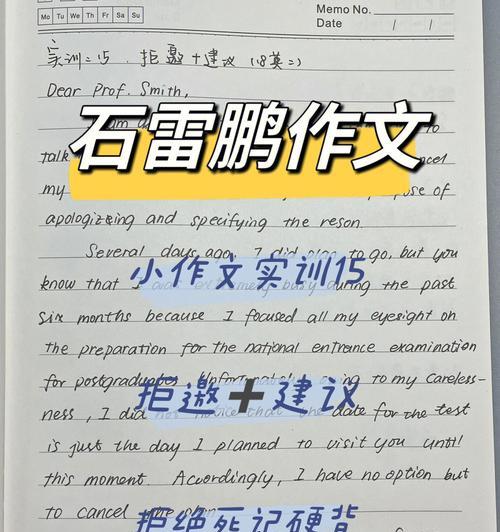 Memo No.
Mo Tu We Th Fr Sa Su
Date / /
实训=15. 拒邀+建议(18英二)
Dear Prof. Smith,
am
to
石雷鹏作文
talk
cel
my
pose of
apologizing and specifying the reson.
Several days ago, I did plan to go, but you
小作文实训15
know that I busy during the past
six months because I focused all my eyesight on
the preparation for the national entrance examination
for postgraduates. Unfortunately, owing to my careless-
拒邀+建议
ness, I did not notice that the date for the test
is just the day I planned to visit you until
this moment. Accordingly, I have no option but
to cancel the plan.
拒绝死记硬背